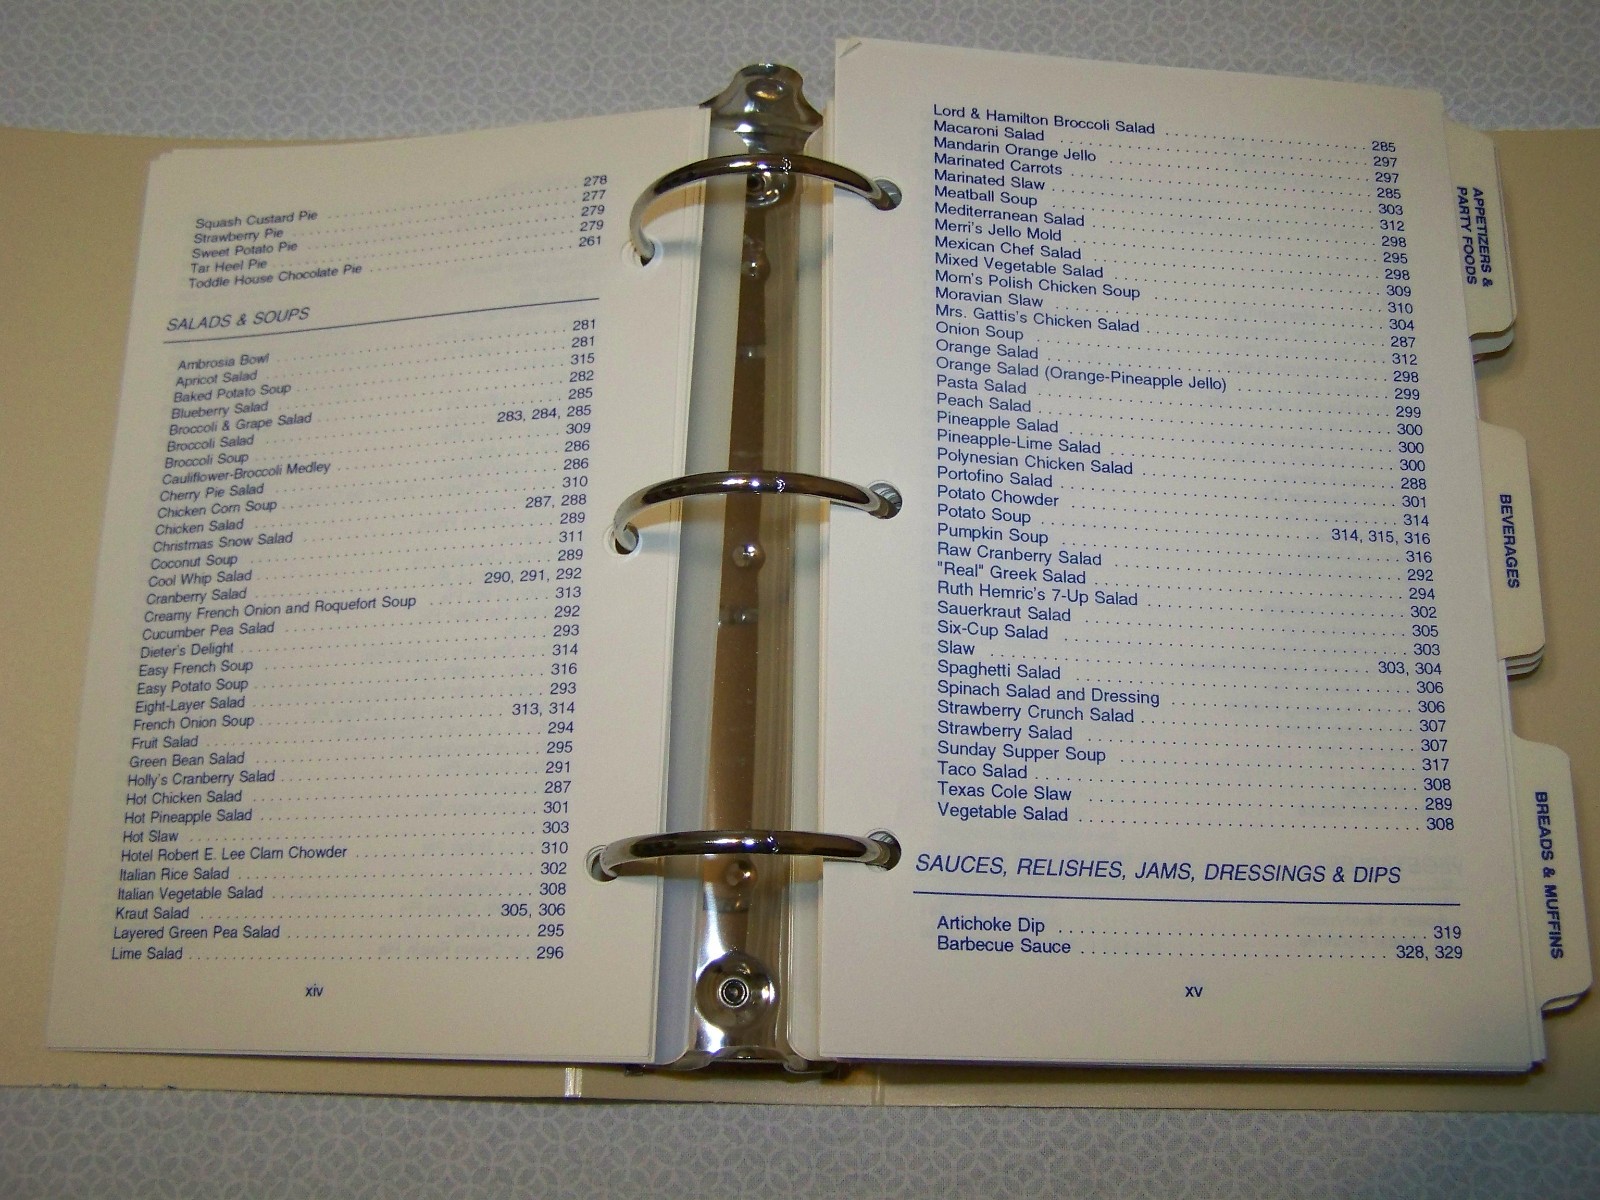 Squash Custard Pie 278
Strawberry Pie 277
Sweet Potato Pie 279
Tar Heel Pie 279
Toddle House Chocolate Pie 261
SALADS & SOUPS
Ambrosia Bowl 281
Apricot Salad 281
Baked Potato Soup 315
Blueberry Salad 282
Broccoli & Grape Salad 285
Broccoli Salad 283, 284, 285
Broccoli Soup 309
Cauliflower-Broccoli Medley 286
Cherry Pie Salad 286
Chicken Corn Soup 310
Chicken Salad 287, 288
Christmas Snow Salad 289
Coconut Soup 311
Cool Whip Salad 289
Cranberry Salad 290, 291, 292
Creamy French Onion and Roquefort Soup 313
Cucumber Pea Salad 292
Dieter's Delight 293
Easy French Soup 314
Easy Potato Soup 316
Eight-Layer Salad 293
French Onion Soup 313, 314
Fruit Salad 294
Green Bean Salad 295
Holly's Cranberry Salad 291
Hot Chicken Salad 287
Hot Pineapple Salad 301
Hot Slaw 303
Hotel Robert E. Lee Clam Chowder 310
Italian Rice Salad 302
Italian Vegetable Salad 308
Kraut Salad 305, 306
Layered Green Pea Salad 295
Lime Salad 296
xiv
Lord & Hamilton Broccoli Salad 285
Macaroni Salad 297
Mandarin Orange Jello 297
Marinated Carrots 285
Marinated Slaw 303
Meatball Soup 312
Mediterranean Salad 298
Merri's Jello Mold 295
Mexican Chef Salad 298
Mixed Vegetable Salad 309
Mom's Polish Chicken Soup 310
Moravian Slaw 304
Mrs. Gattis's Chicken Salad 287
Onion Soup 312
Orange Salad 298
Orange Salad (Orange-Pineapple Jello) 299
Pasta Salad 299
Peach Salad 300
Pineapple Salad 300
Pineapple-Lime Salad 300
Polynesian Chicken Salad 288
Portofino Salad 301
Potato Chowder 314
Potato Soup 314, 315, 316
Pumpkin Soup 316
Raw Cranberry Salad 292
"Real" Greek Salad 294
Ruth Hemric's 7-Up Salad 302
Sauerkraut Salad 305
Six-Cup Salad 303
Slaw 303, 304
Spaghetti Salad 306
Spinach Salad and Dressing 306
Strawberry Crunch Salad 307
Strawberry Salad 307
Sunday Supper Soup 317
Taco Salad 308
Texas Cole Slaw 289
Vegetable Salad 308
SAUCES, RELISHES, JAMS, DRESSINGS & DIPS
Artichoke Dip 319
Barbecue Sauce 328, 329
xv
APPETIZERS &
PARTY FOODS
BEVERAGES
BREADS & MUFFINS